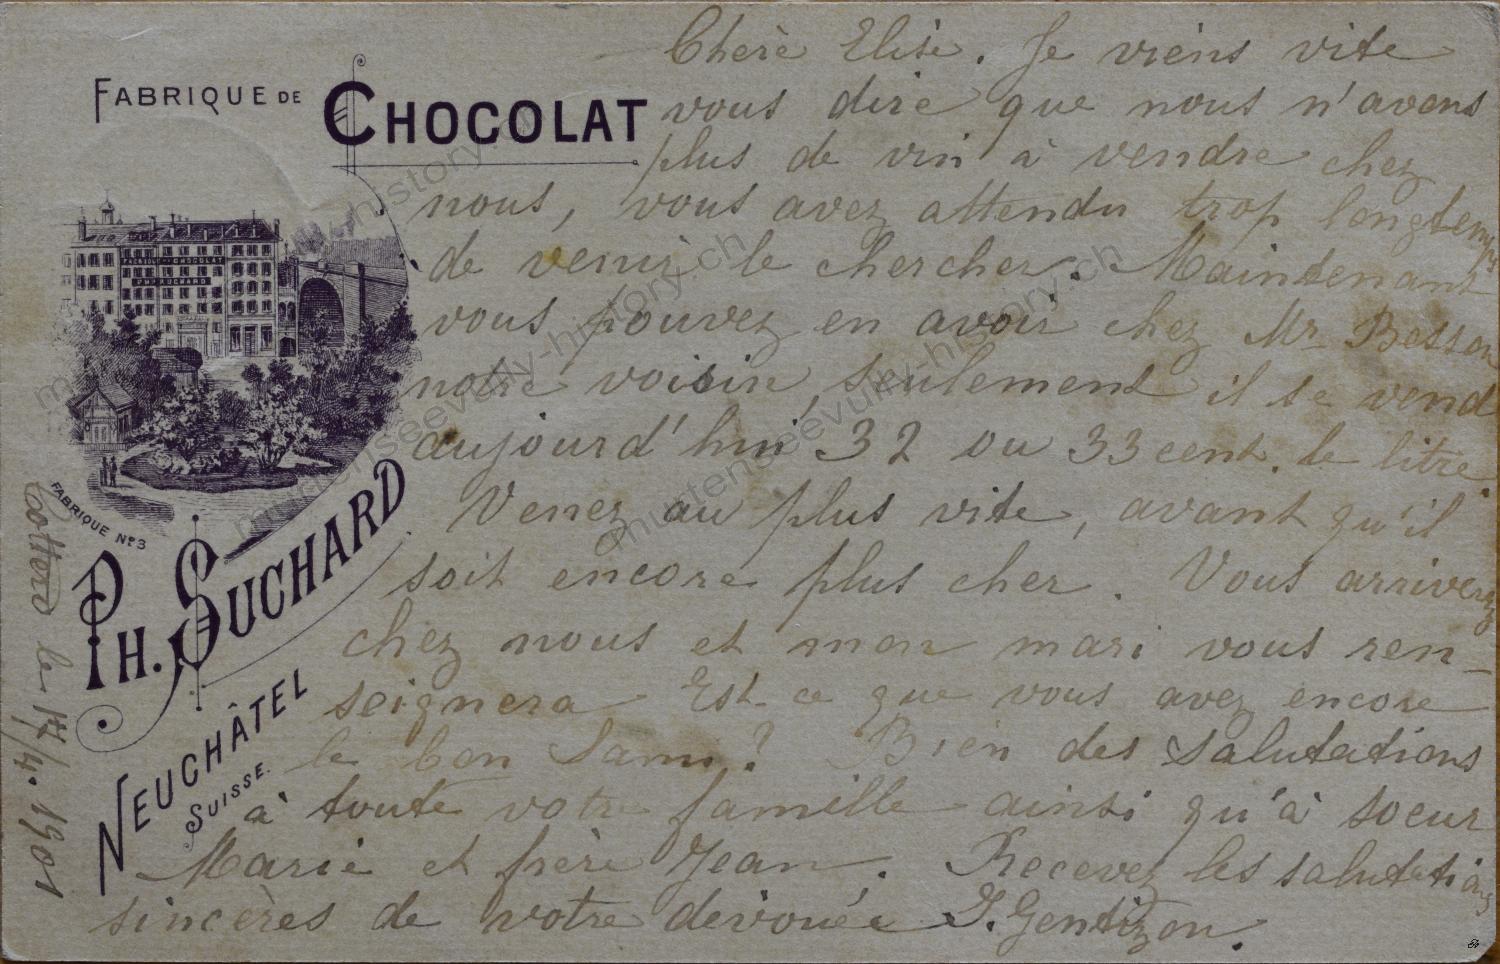 FABRIQUE DE CHOCOLAT
FABRIQUE DE CHOCOLAT
PH. SUCHARD
FABRIQUE No 3
PH. SUCHARD
NEUCHÂTEL
SUISSE.
Cotterd le 14/4. 1901
Chère Elise. Je viens vite
vous dire que nous n'avons
plus de vin à vendre chez
nous, vous avez attendu trop longtemps
de venir le chercher. Maintenant
vous pouvez en avoir chez Mr Besson
notre voisin, seulement il se vend
aujourd'hui 32 ou 33 cent. le litre
Venez au plus vite, avant qu'il
soit encore plus cher. Vous arriverez
chez nous et mon mari vous ren-
seignera Est-ce que vous avez encore
le bon Sami? Bien des salutations
à toute votre famille ainsi qu'à soeur
Marie et frère Jean. Recevez les salutations
sincères de votre dévouée J. Gentizon.
murtenseevully-history.ch
murtenseevully-history.ch
murtenseevully-history.ch